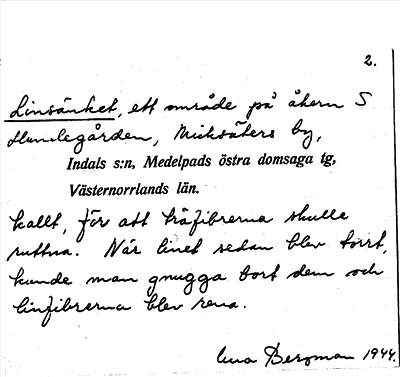 2.
Linsänket, ett område på åkern S
Humlegården, Micksäters by,
Indals s:n, Medelpads östra domsaga tg,
Västernorrlands län.
kallt, för att träfibrerna skulle
ruttna. När linet sedan blev torrt,
kunde man gnugga bort dem och
linfibrerna blev rena.
Lena Bergman 1944.